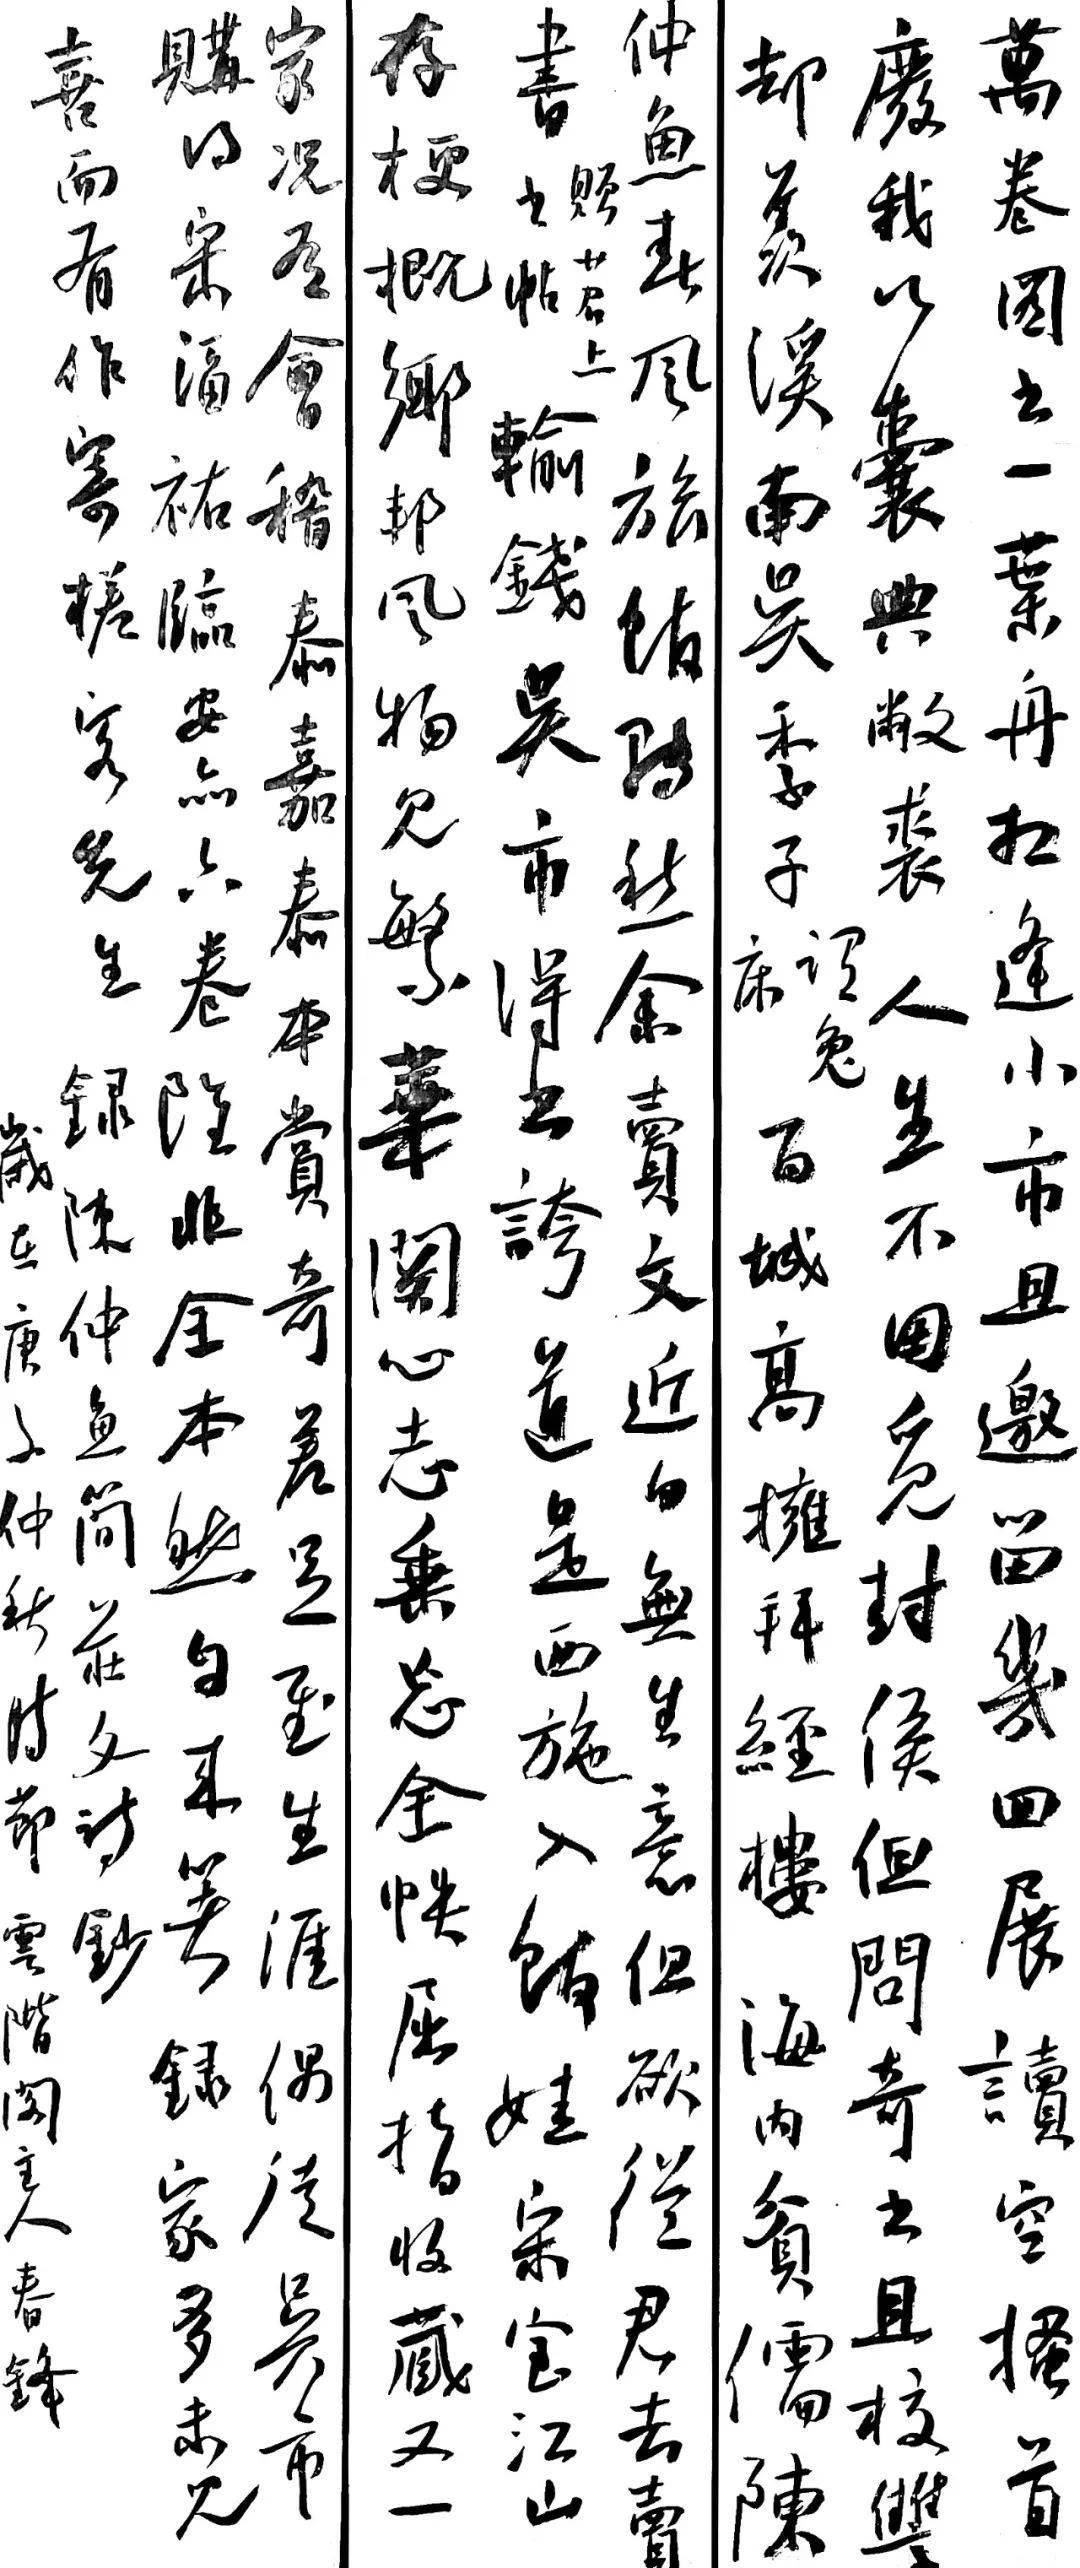 萬卷圖書一葉舟相逢小市且邀留幾回展讀空搔首
廢我以囊典敝裘人生不用覓封侯但問奇書且校讎
却羨溪南吳季子謂兔床百城高擁拜經樓海內貧儒陳
仲魚春風旅館對愁余賣文近日無生意但欲從君去賣
書賜君上書帖輸錢吳市得書誇道是西施入館娃宋室江山
存梗概鄉邦風物見繁華關心志乘忘全帙屈指收藏又一
家況有會稽泰嘉泰本賞奇差足到生涯偶從吳市
購得宋淳祐臨安志六卷雖非全本然自來著錄家多未見
喜而有作寄槎客先生 錄陳仲魚簡莊文詩鈔
歲在庚子仲秋時節雲階閣主人春鋒